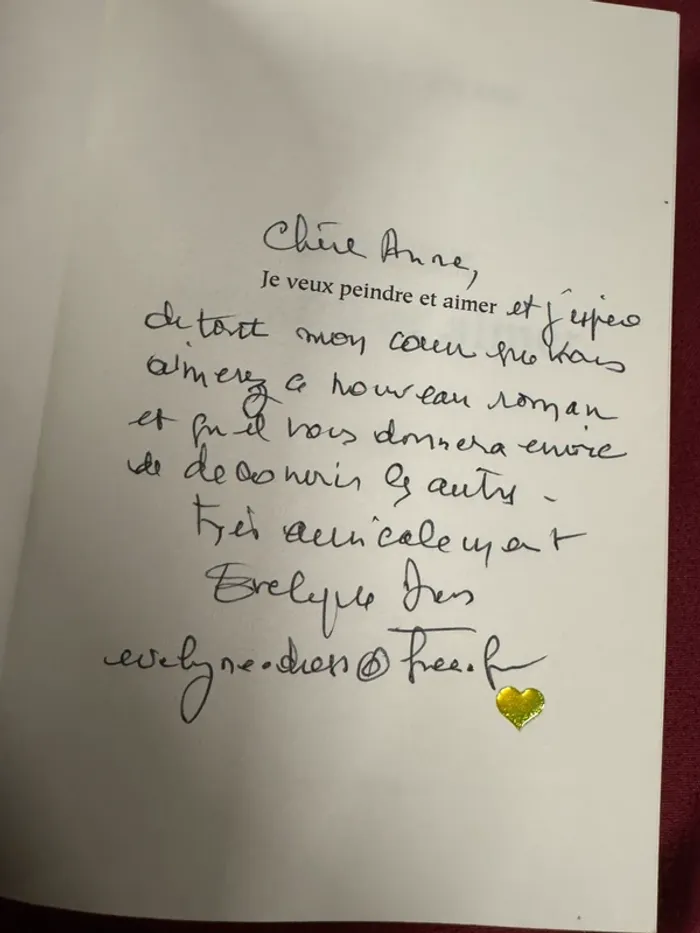 Chère Anne,
Je veux peindre et aimer et j'espère
de tout mon coeur que vous
aimerez ce nouveau roman
et qu'il vous donnera envie
de découvrir les autres.
Très amicalement
Evelyne Dress
evelyne.dress@free.fr